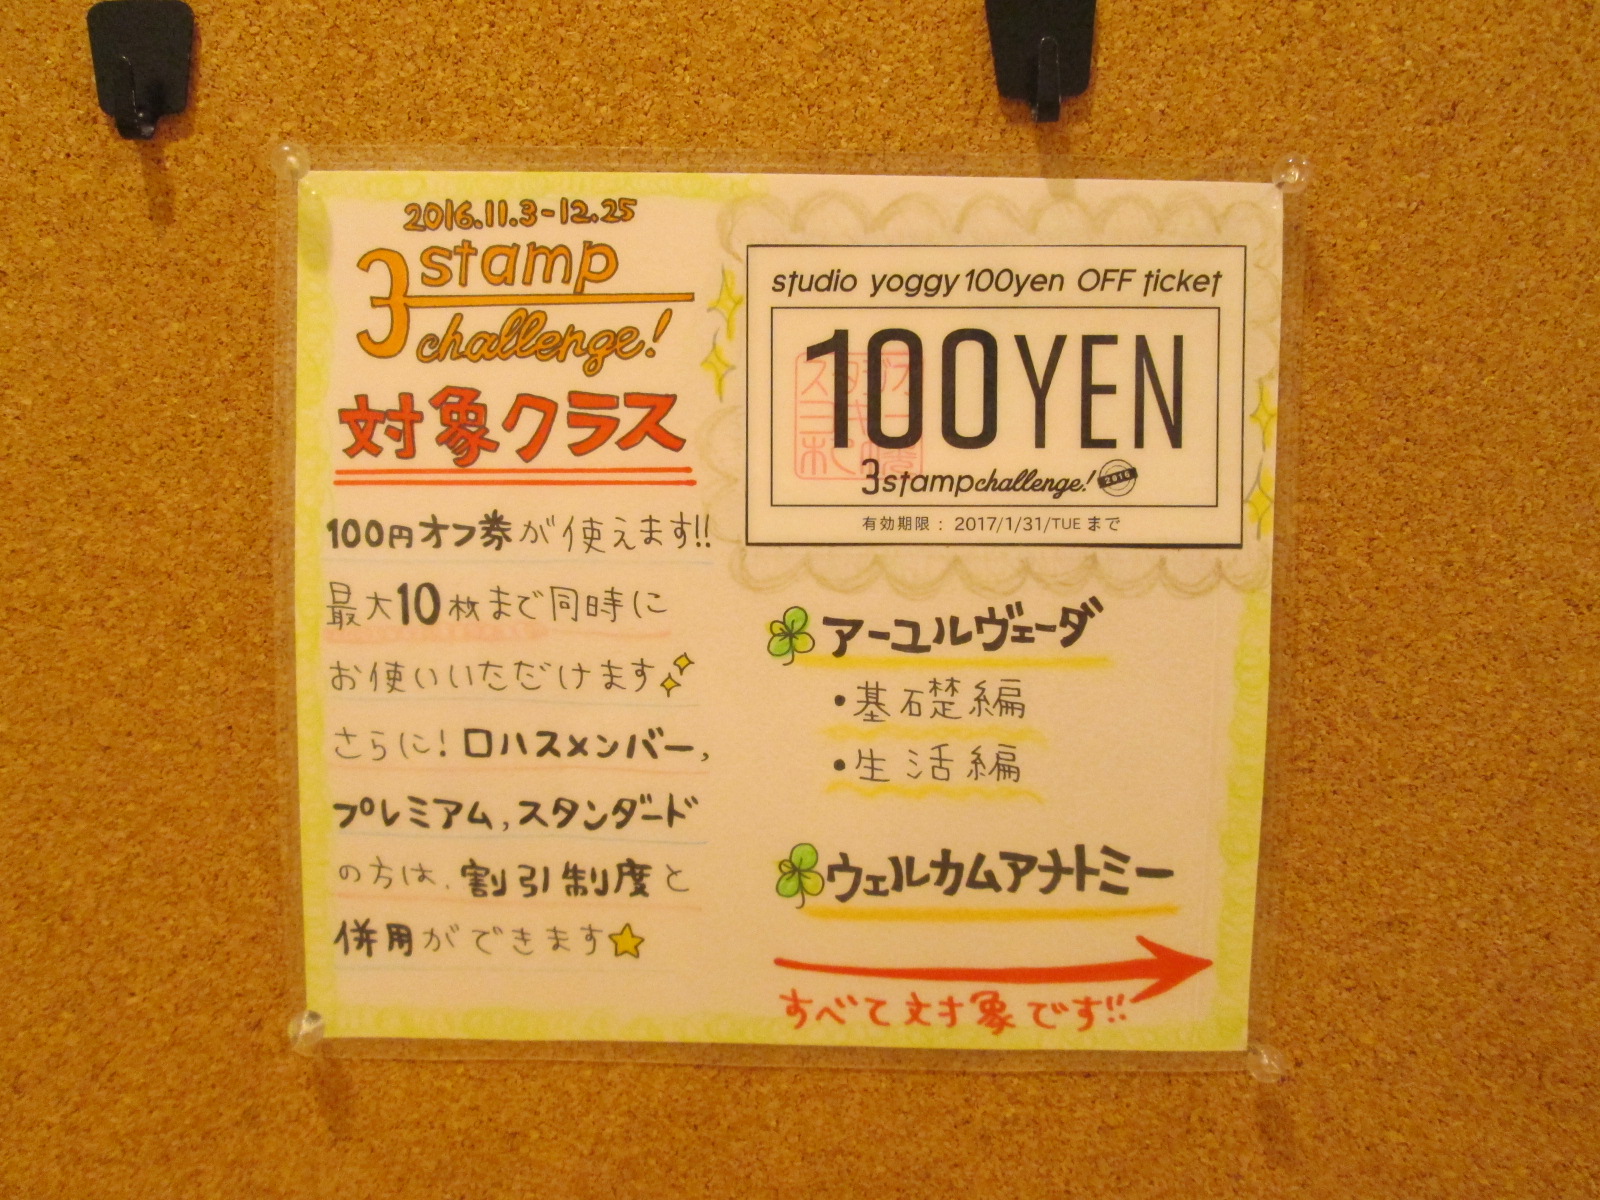 2016.11.3-12.25
3 stamp
challenge!
対象クラス
100円オフ券が使えます!!
最大10枚まで同時に
お使いいただけます
さらに!ロハスメンバー,
プレミアム,スタンダード
の方は、割引制度と
併用ができます
studio yoggy 100yen OFF ticket
100YEN
3stampchallenge! 2016
有効期限：2017/1/31/TUE まで
アーユルヴェーダ
•基礎編
•生活編
ウェルカムアナトミー
すべて対象です!!